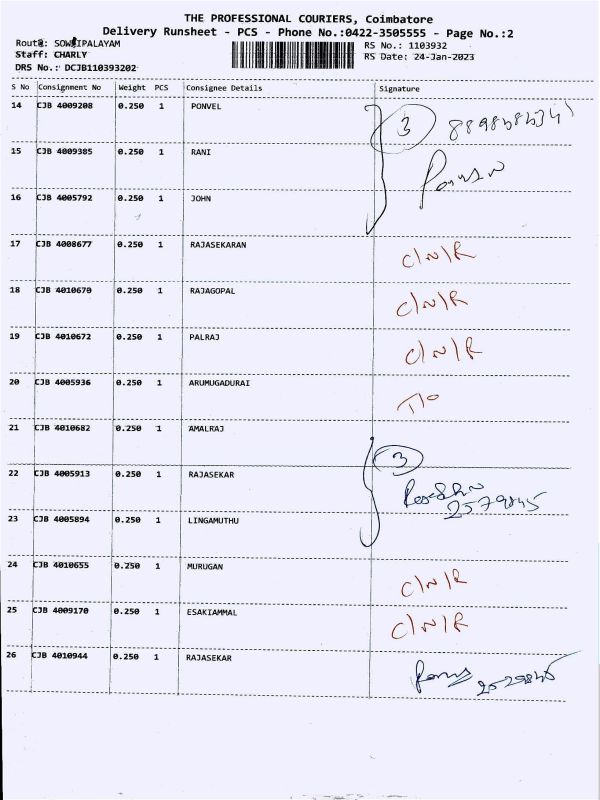 THE PROFESSIONAL COURIERS, Coimbatore
Delivery Runsheet - PCS - Phone No.:0422-3505555 - Page No.:2
Route: SOWRIPALAYAM
Staff: CHARLY
DRS No.: DCJB110393202
RS No.: 1103932
RS Date: 24-Jan-2023
S No Consignment No Weight PCS Consignee Details Signature
14 CJB 4009208 0.250 1 PONVEL 3
15 CJB 4009385 0.250 1 RANI
16 CJB 4005792 0.250 1 JOHN
17 CJB 4008677 0.250 1 RAJASEKARAN C/N/R
18 CJB 4010670 0.250 1 RAJAGOPAL C/N/R
19 CJB 4010672 0.250 1 PALRAJ C/N/R
20 CJB 4005936 0.250 1 ARUMUGADURAI
21 CJB 4010682 0.250 1 AMALRAJ
3
22 CJB 4005913 0.250 1 RAJASEKAR
2579845
23 CJB 4005894 0.250 1 LINGAMUTHU
24 CJB 4010655 0.250 1 MURUGAN C/N/R
25 CJB 4009170 0.250 1 ESAKIAMMAL C/N/R
26 CJB 4010944 0.250 1 RAJASEKAR